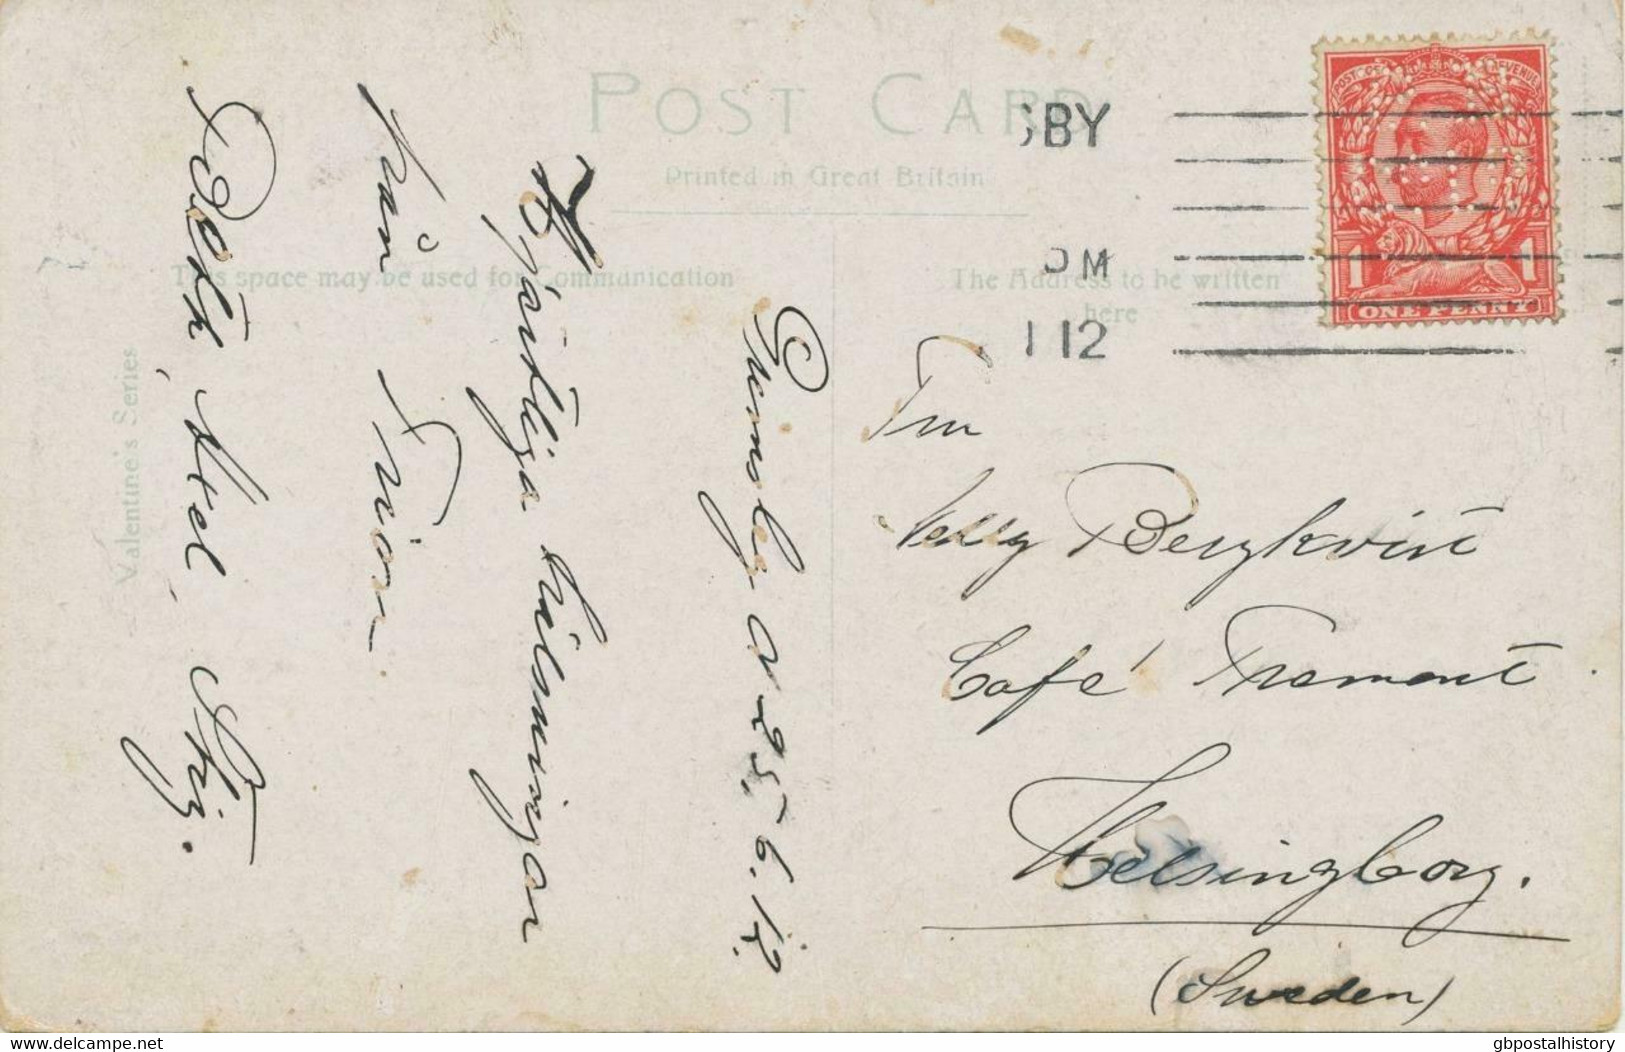 POST CARD
Printed in Great Britain
This space may be used for Communication
The Address to be written
here
Valentine's Series
SBY
PM
1 12
POSTAGE REVENUE
1 1
ONE PENNY
Grimsby d 25 6. 12.
Hjärtliga hälsningar
från
Axel
Nelly Bergkvist
Café Tramont
Helsingborg.
(Sweden)
delcampe.net
gbpostalhistory